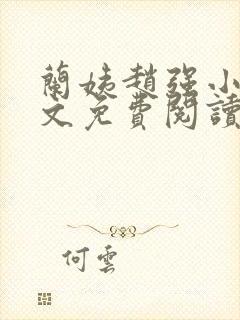 蘭姨趙強小
文免費閱讀
何雲